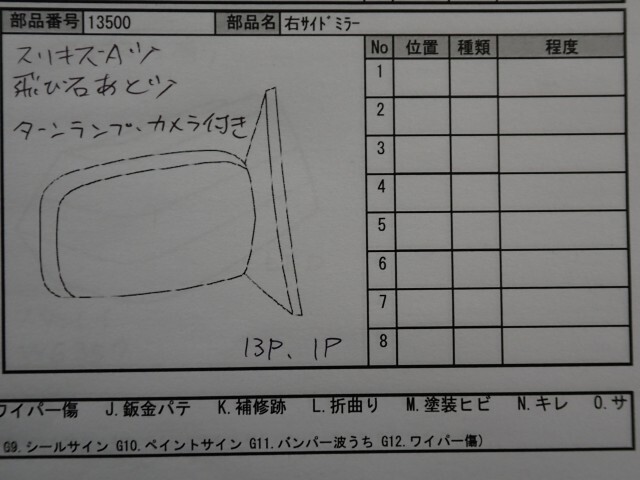 部品番号 13500 部品名 右サイドミラー
スリキズ-Aツ
飛び石あとツ
ターンランプ、カメラ付き
No 位置 種類 程度
1
2
3
4
5
6
7
8
13P、1P
ワイパー傷 J.鈑金パテ K.補修跡 L.折曲り M.塗装ヒビ N.キレ O.サ
G9.シールサイン G10.ペイントサイン G11.バンパー波うち G12.ワイパー傷)